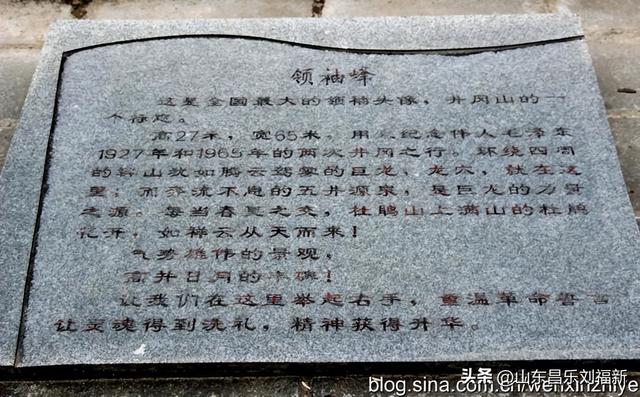 领袖峰
这是全国最大的领袖头像，井冈山的一
个标志。
高27米，宽65米。用以纪念伟人毛泽东
1927年和1965年的两次井冈之行。环绕四周
的群山犹如腾云驾雾的巨龙，龙穴，就在这
里；而奔流不息的五井源泉，是巨龙的力量
之源。每当春夏之交，杜鹃山上满山的杜鹃
花开，如祥云从天而来！
气势雄伟的景观，
高并日月的丰碑！
让我们在这里举起右手，重温革命誓言
让灵魂得到洗礼，精神获得升华。
头条 @山东昌乐刘福新
blog.sina.com.cn/wenxinzhiye